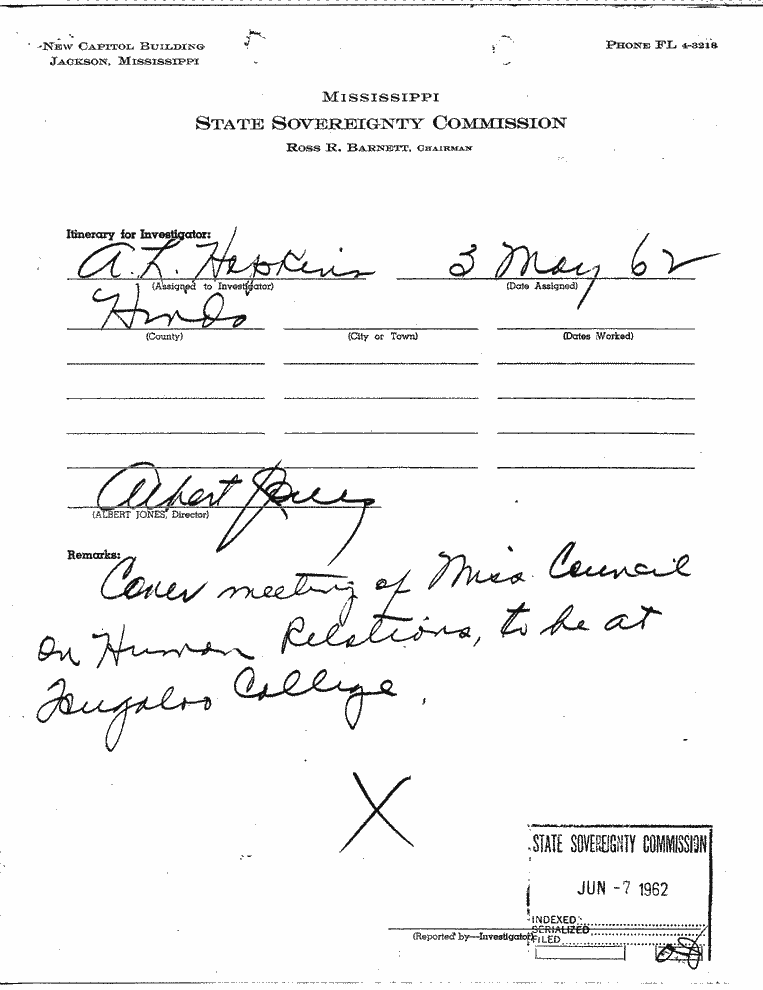 NEW CAPITOL BUILDING
JACKSON, MISSISSIPPI
PHONE FL 4-3218
MISSISSIPPI
STATE SOVEREIGNTY COMMISSION
ROSS R. BARNETT, CHAIRMAN
Itinerary for Investigator:
A.L. Hopkins 3 May 62
(Assigned to Investigator) (Date Assigned)
Hinds
(County) (City or Town) (Dates Worked)
Albert Jones
(ALBERT JONES, Director)
Remarks:
Cover meeting of Miss. Council
on Human Relations, to be at
Tougaloo College.
X
STATE SOVEREIGNTY COMMISSION
JUN -7 1962
INDEXED
SERIALIZED
(Reported by—Investigator)
FILED